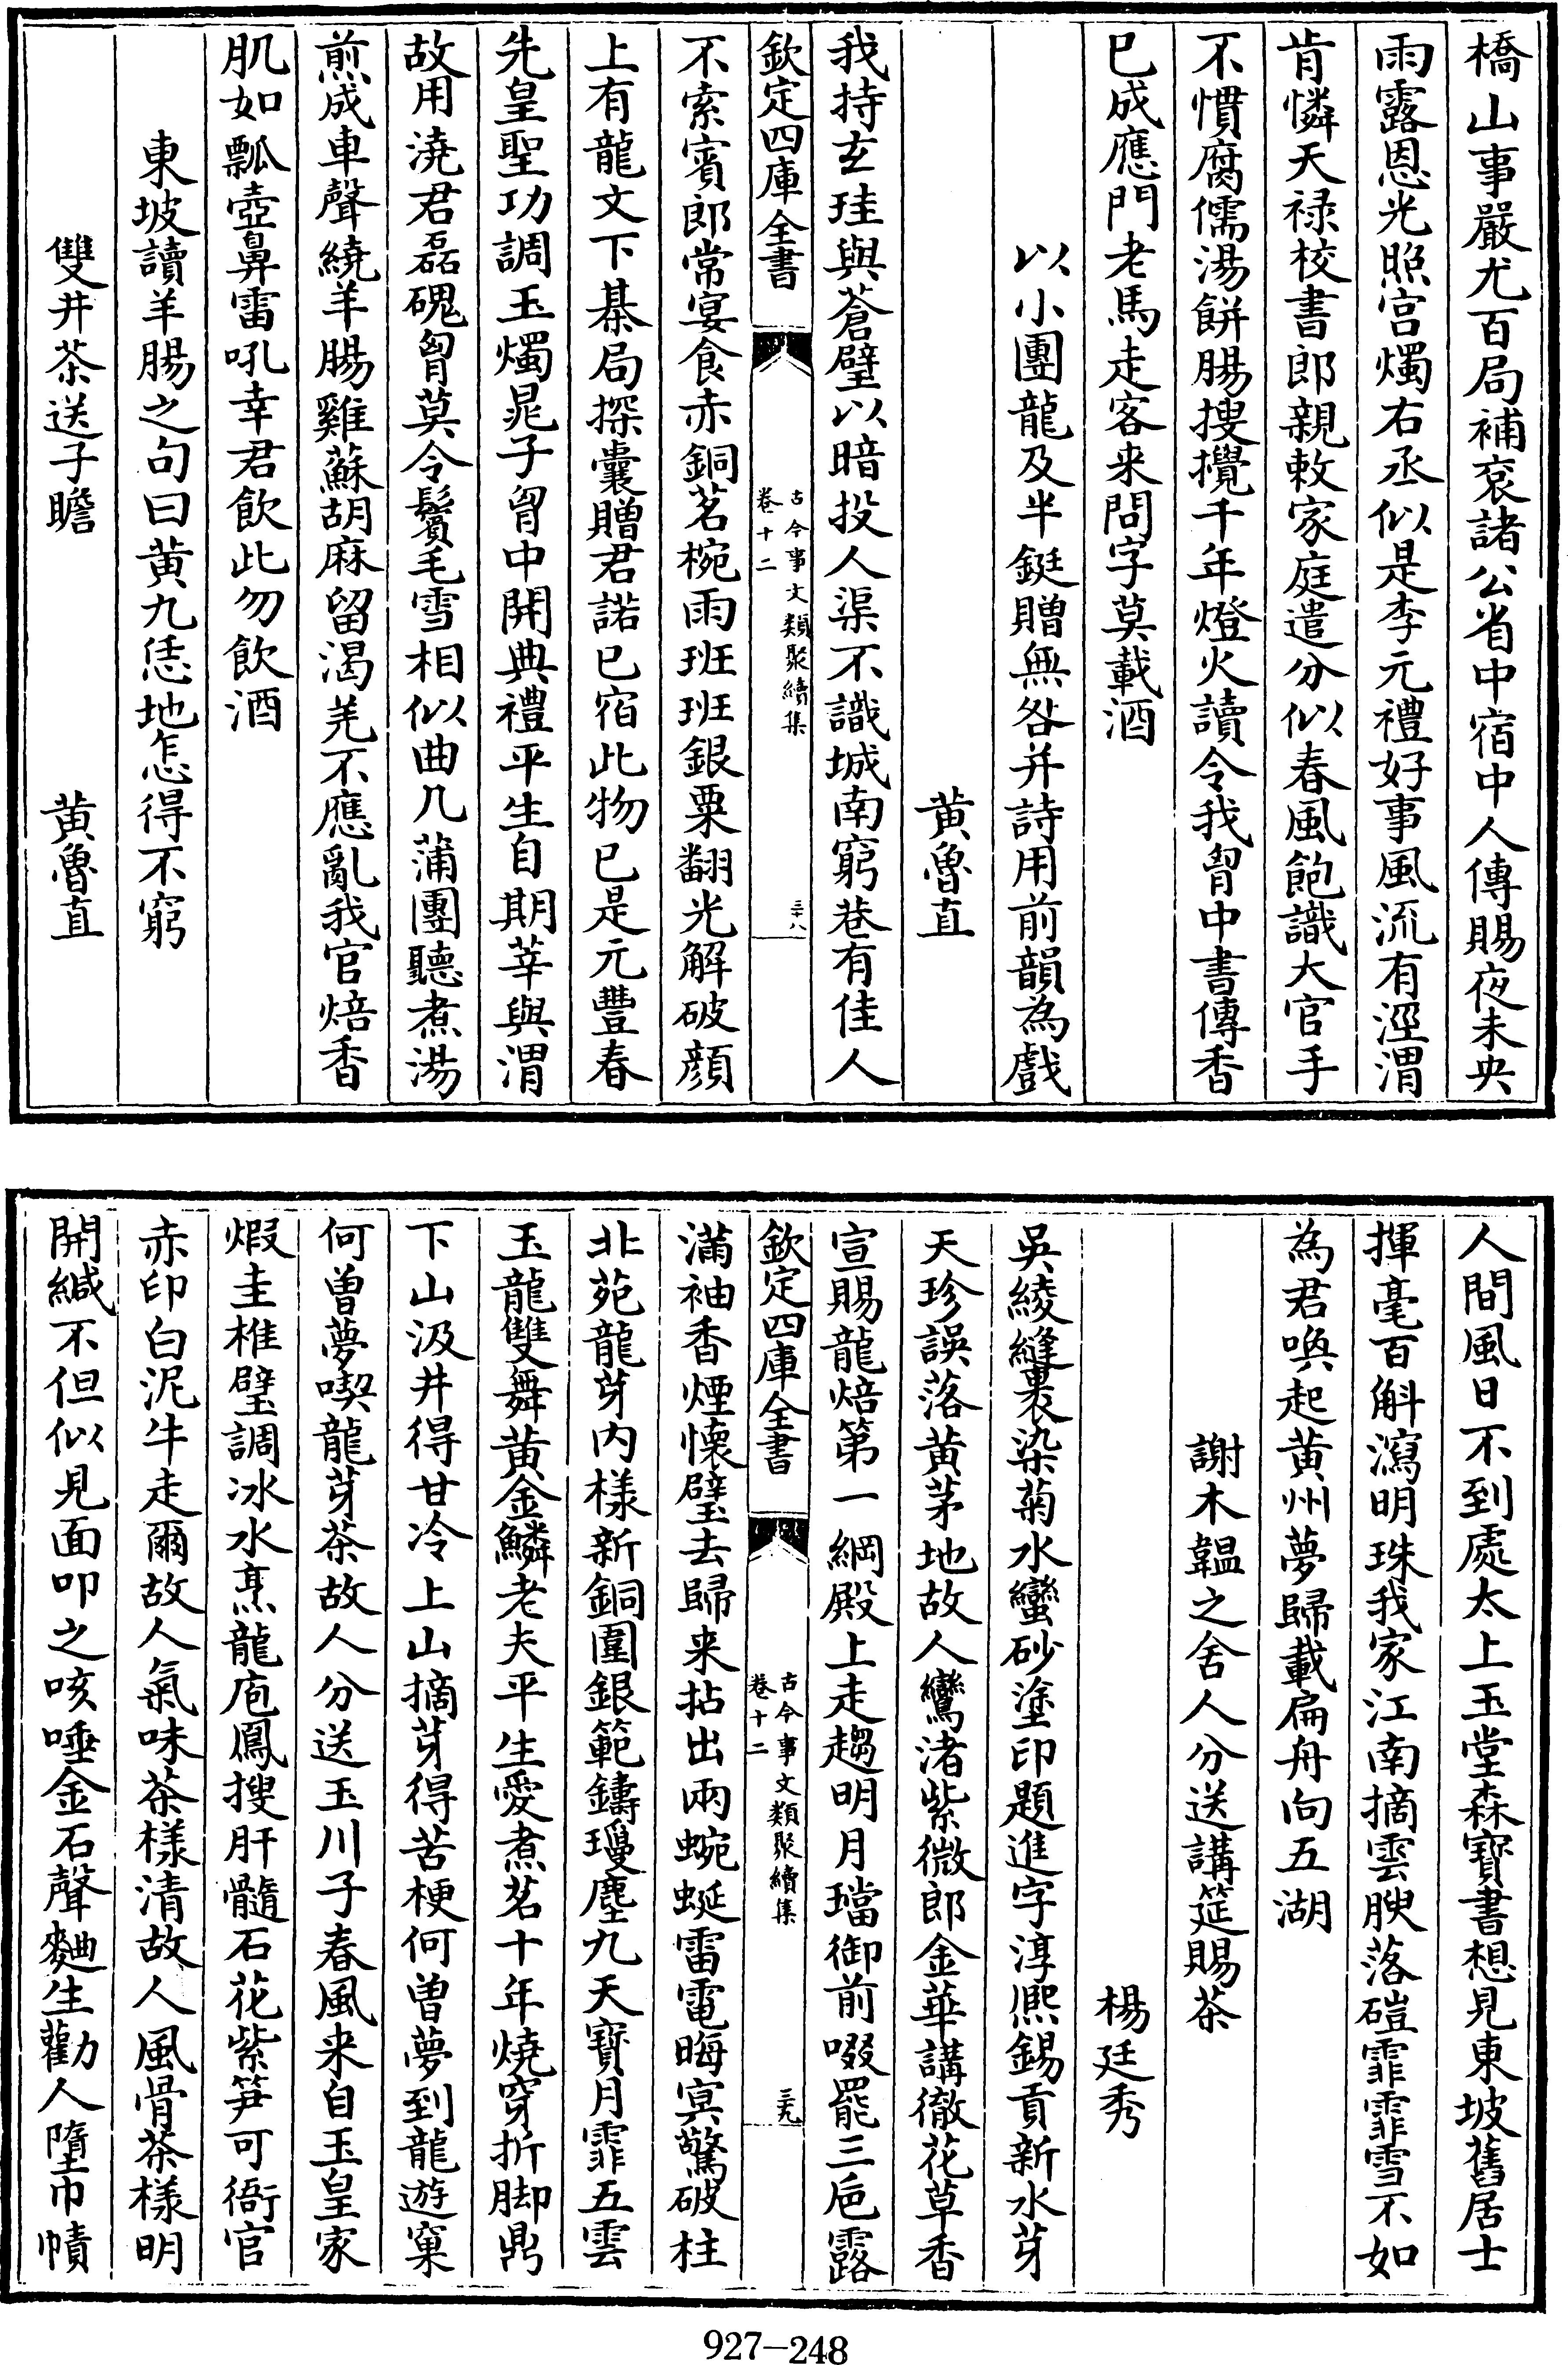 橋山事嚴尤百局補衮諸公省中宿中人傳賜夜未央
雨露恩光照宫燭右丞似是李元禮好事風流有涇渭
肯憐天禄校書郎親敕家庭遣分似春風飽識大官手
不慣腐儒湯餅腸搜攪千年燈火讀令我胷中書傳香
已成應門老馬走客来問字莫載酒
以小團龍及半鋌贈無咎并詩用前韻為戲
黄魯直
我持玄珪與蒼璧以暗投人渠不識城南窮巷有佳人
欽定四庫全書
古今事文類聚續集
卷十二
三十八
不索賓郎常宴食赤銅茗椀雨班班銀粟翻光解破顔
上有龍文下棊局探囊贈君諾已宿此物已是元豐春
先皇聖功調玉燭晁子胷中開典禮平生自期莘與渭
故用澆君磊磈胷莫令鬢毛雪相似曲几蒲團聽煮湯
煎成車聲繞羊腸雞蘇胡麻留渴羌不應亂我官焙香
肌如瓢壺鼻雷吼幸君飲此勿飲酒
東坡讀羊腸之句曰黄九恁地怎得不窮
雙井茶送子瞻
黄魯直
人間風日不到處太上玉堂森寳書想見東坡舊居士
揮毫百斛瀉明珠我家江南摘雲腴落磑霏霏雪不如
為君喚起黄州夢歸載扁舟向五湖
謝木韞之舍人分送講筵賜茶
楊廷秀
吳綾縫裏染菊水蠻砂塗印題進字淳熈錫貢新水芽
天珍誤落黄茅地故人鸞渚紫微郎金華講徹花草香
宣賜龍焙第一綱殿上走趨明月璫御前啜罷三巵露
欽定四庫全書
古今事文類聚續集
卷十二
三十九
滿袖香煙懷璧去歸来拈出兩蜿蜒雷電晦冥驚破柱
北苑龍芽内樣新銅圍銀範鑄瓊塵九天寳月霏五雲
玉龍雙舞黄金鱗老夫平生愛煮茗十年燒穿折脚鼎
下山汲井得甘冷上山摘芽得苦梗何曽夢到龍遊窠
何曽夢喫龍芽茶故人分送玉川子春風来自玉皇家
煆圭椎璧調冰水烹龍庖鳳搜肝髓石花紫笋可衙官
赤印白泥牛走爾故人氣味茶様清故人風骨茶様明
開緘不但似見面叩之咳唾金石聲麯生勸人墮巾幘
927-248